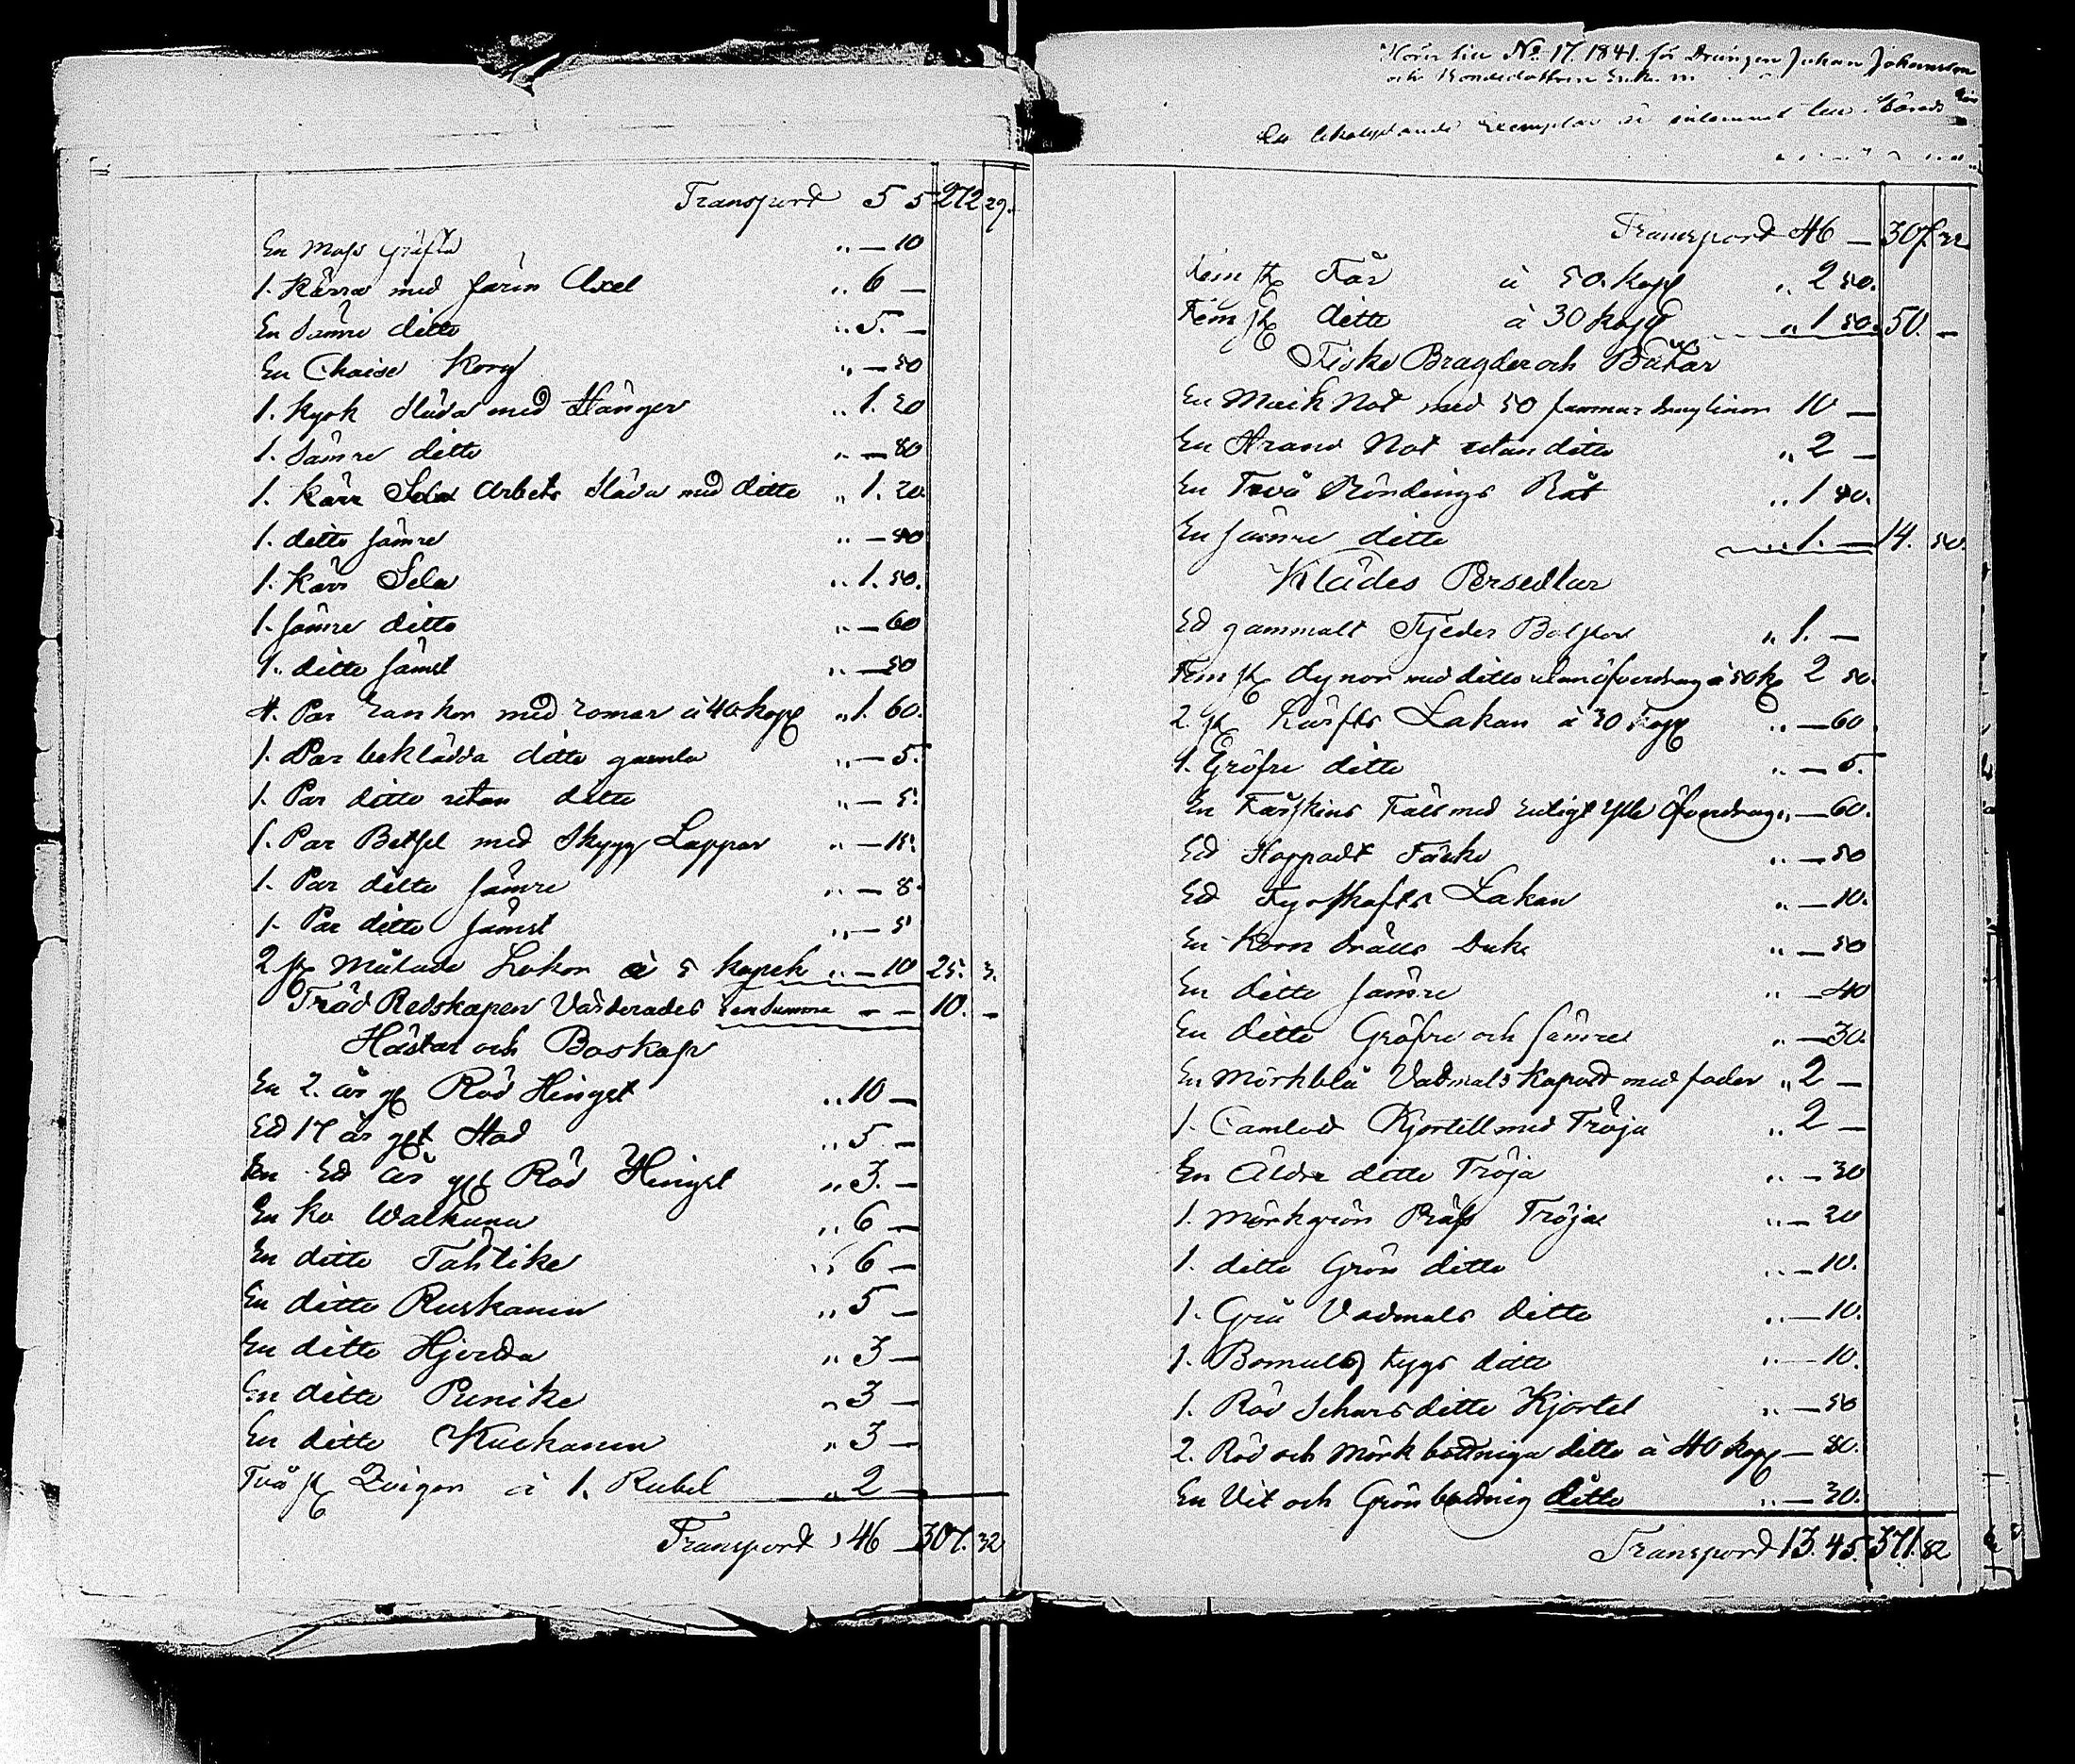 Transpord 5 5 272 29.
En Mass Gräfta „ — 10
1. Kärra med järn Axel „ 6 —
En Sämre ditto „ 5. —
En Chaise Korg „ — 50
1. Kyrk Släda med Stänger „ 1. 20
1. Sämre ditto „ — 80
1. Kärr Sela Arbets Släda med ditto „ 1. 20.
1. ditto sämre „ — 40
1. Kärr Sela „ 1. 50.
1. sämre ditto „ — 60
1. ditto sämst „ — 50
4. Par Rankor med Romar à 40 kop „ 1. 60.
1. Par beklädda ditto gamla „ — 5.
1. Par ditto utan ditto „ — 5.
1. Par Betsel med Skygg Lappar „ — 15.
1. Par ditto sämre „ — 8.
1. Par ditto sämst „ — 5
2 st Målade Lokor à 5 kopek „ — 10 25. 3.
Träd Redskapen Värderades i en Summa — — 10. —
Hästar och Boskap
En 2. års gl Röd Hingst „ 10 —
Ed 17 års glt Stod „ 5. —
En Ed års gl Röd Hingst „ 3. —
En ko Walkuna „ 6 —
En ditto Tähtike „ 6 —
En ditto Ruskama „ 5 —
En ditto Hjerda „ 3 —
En ditto Punike „ 3 —
En ditto Kuckama „ 3 —
Två st Qvigor à 1. Rubel „ 2 —
Transpord „ 46 — 307. 32
Hörer till No 17. 1841. för Drängen Johan Johansson
och Bondedottren
En likalydande Exemplar är inlemnat till Härads
Transpord 46 — 307. 32
Fem st Får à 50. kop „ 2 50.
Fem st ditto à 30 kop „ 1 50. 50. —
Fiske Bragder och Båtar
En Muik Not med 50 famnar draglinor 10 —
En Strand Not utan ditto „ 2 —
En Två Bördings Båt „ 1 40.
En sämre ditto „ 1. — 14. 50.
Klädes Persedlar
Ed gammalt Fjeder Bolster „ 1. —
Fem st dynor med ditto utan öfverdrag à 50 k 2 50.
2. st Lärfts Lakan à 30 kop „ — 60
1. Gröfre ditto „ — 5.
En Fårskins Fäll med Ylle Öfverdrag „ — 60.
Ed Stoppadt Täcke „ — 50
Ed Fyrskafts Lakan „ — 10.
En Korn drälls Duk „ — 50
En ditto sämre „ — 40
En ditto Gröfre och sämre „ — 30.
En Mörkblå Vadmals Kapott med foder „ 2 —
1. Camlott Kjortell med Tröja „ 2 —
En Äldre ditto Tröja „ — 30
1. Mörkgrön Tröja „ — 20
1. ditto Grön ditto „ — 10.
1. Grå Vadmals ditto „ — 10.
1. Bomulls tygs ditto „ — 10.
1. Röd Schars ditto Kjortel „ — 50
2. Röd och Mörk bottniga ditto à 40 kop — 80.
En Vit och Grön bottnig ditto „ — 30.
Transpord 13. 45. 371. 82